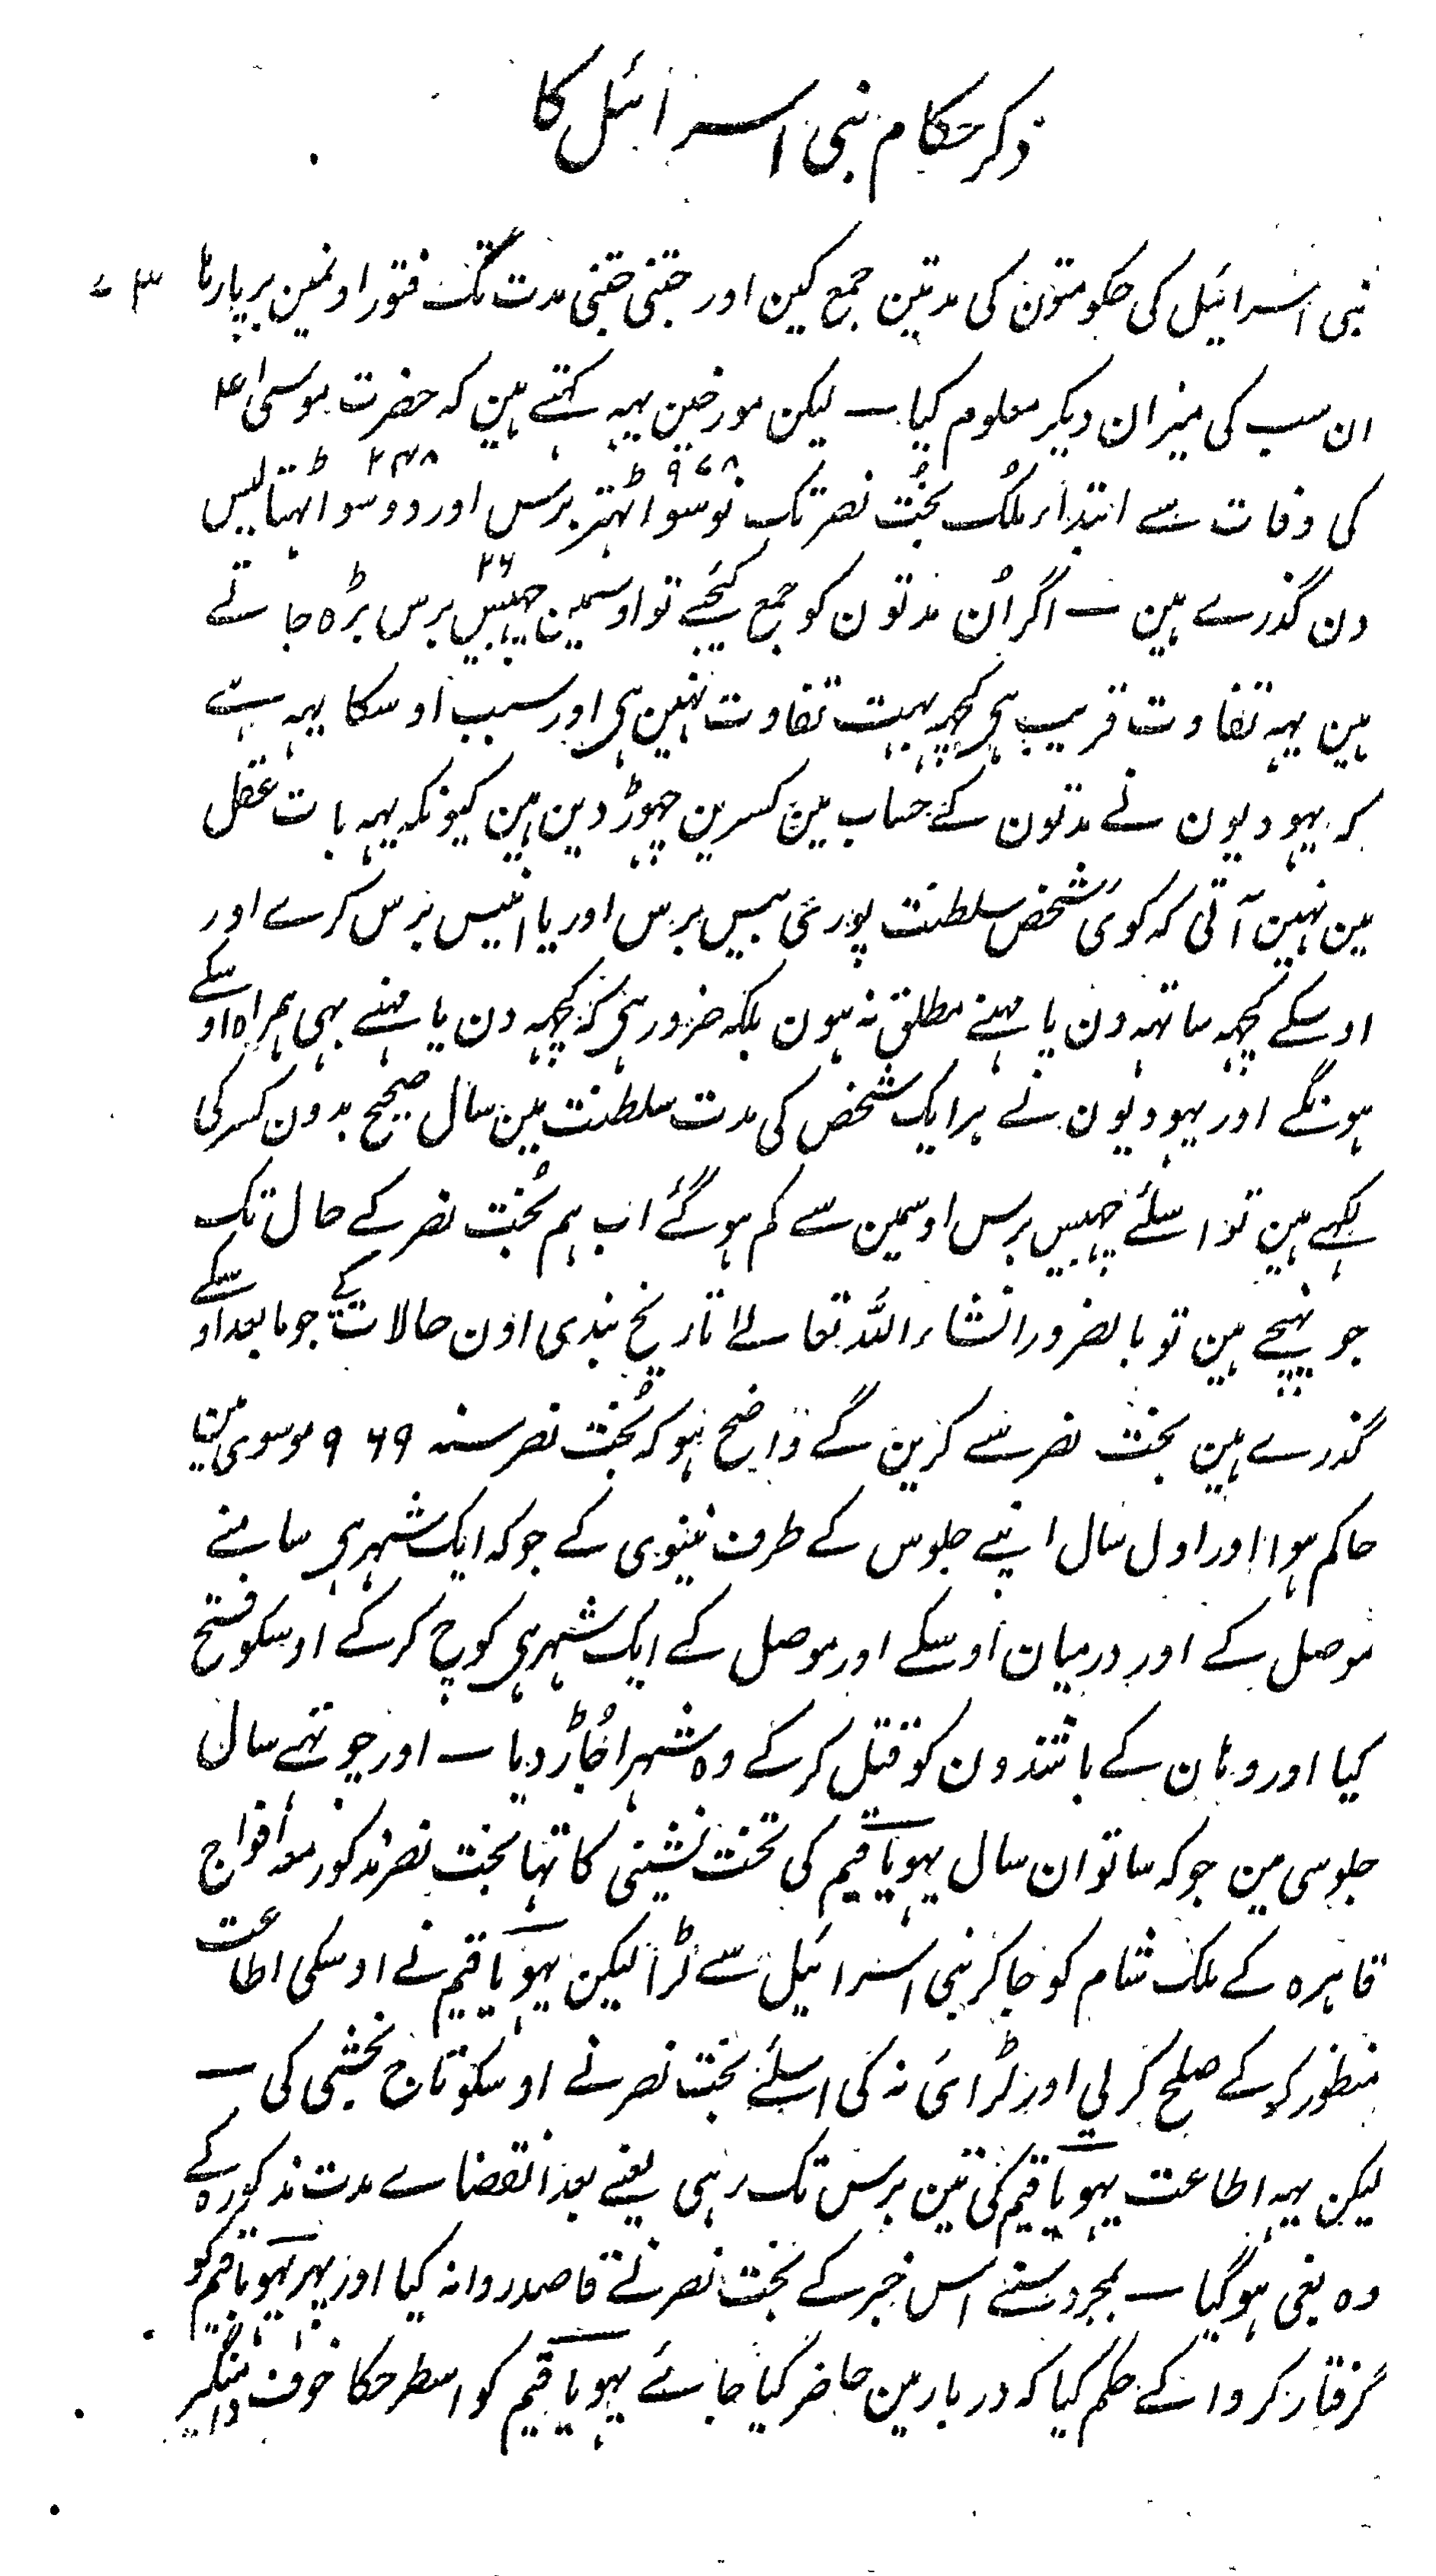 ذکر حکام بنی اسرائیل کا
بنی اسرائیل کی حکومتون کی مدتین جمع کین اور جتنی جتنی مدت تک فتور اونمین برپا رہا ۷۳
ان سب کی میزان دیکر معلوم کیا ــ لیکن مورخین یہہ کہتے ہین کہ حضرت موسیٰ ع
کی وفات سے ابتداء ملک بُخت نصر تک نوسو اٹہتر ۹۷۸ برس اور دوسو اٹہتالیس ۲۴۸
دن گذرے ہین ــ اگر اُن مدتون کو جمع کیجئے تو اوسمین چہبیس ۲۶ برس بڑہ جاتے
ہین یہہ تفاوت قریب ہی کچہہ بہت تفاوت نہین ہی اور سبب اوسکا یہہ ہے
کہ یہودیون نے مدتون کے حساب مین کسرین چہوڑ دین ہین کیونکہ یہہ بات عقل
مین نہین آتی کہ کوئی شخص سلطنت پوری بیس برس اور یا انیس برس کرے اور
اوسکے کچہہ ساتہہ دن یا مہنے مطلق نہ ہون بلکہ ضرور ہی کہ کچہہ دن یا مہنے بہی ہمراہ اوسکے
ہونگے اور یہودیون نے ہر ایک شخص کی مدت سلطنت مین سال صحیح بدون کسر کی
لکہے ہین تو اسلئے چہبیس برس اوسمین سے کم ہو گئے اب ہم بُخت نصر کے حال تک
جو پہنچے ہین تو بالضرور انشاء اللہ تعالےٰ تاریخ بندی اون حالات کے جو ما بعد اوسکے
گذرے ہین بخت نصر سے کرین گے واضح ہو کہ بُخت نصر سنہ ۹۶۹ موسوی مین
حاکم ہوا اور اول سال اپنے جلوس کے طرف نینوی کے جو کہ ایک شہر ہی سامنے
موصل کے اور درمیان اوسکے اور موصل کے ایک شہر ہی کوچ کرکے اوسکو فتح
کیا اور وہان کے باشندون کو قتل کرکے وہ شہر اُجاڑ دیا ــ اور چوتہے سال
جلوسی مین جو کہ ساتوان سال یہویاقیم کی تخت نشینی کا تہا بخت نصر مذکور معہ افواج
قاہرہ کے ملک شام کو جاکر بنی اسرائیل سے لڑا لیکن یہویاقیم نے اوسکی اطاعت
منظور کرکے صلح کرلی اور لڑائی نہ کی اسلئے بخت نصر نے اوسکو تاج بخشی کی ــ
لیکن یہہ اطاعت یہویاقیم کی تین برس تک رہی یعنے بعد انقضاے مدت مذکورہ کے
وہ بغی ہو گیا ــ بمجرد سنے اس خبر کے بخت نصر نے قاصد روانہ کیا اور پہر یہویاقیم کو
گرفتار کرواکے حکم کیا کہ دربار مین حاضر کیا جائے یہویاقیم کو اسطرحکا خوف دامنگیر